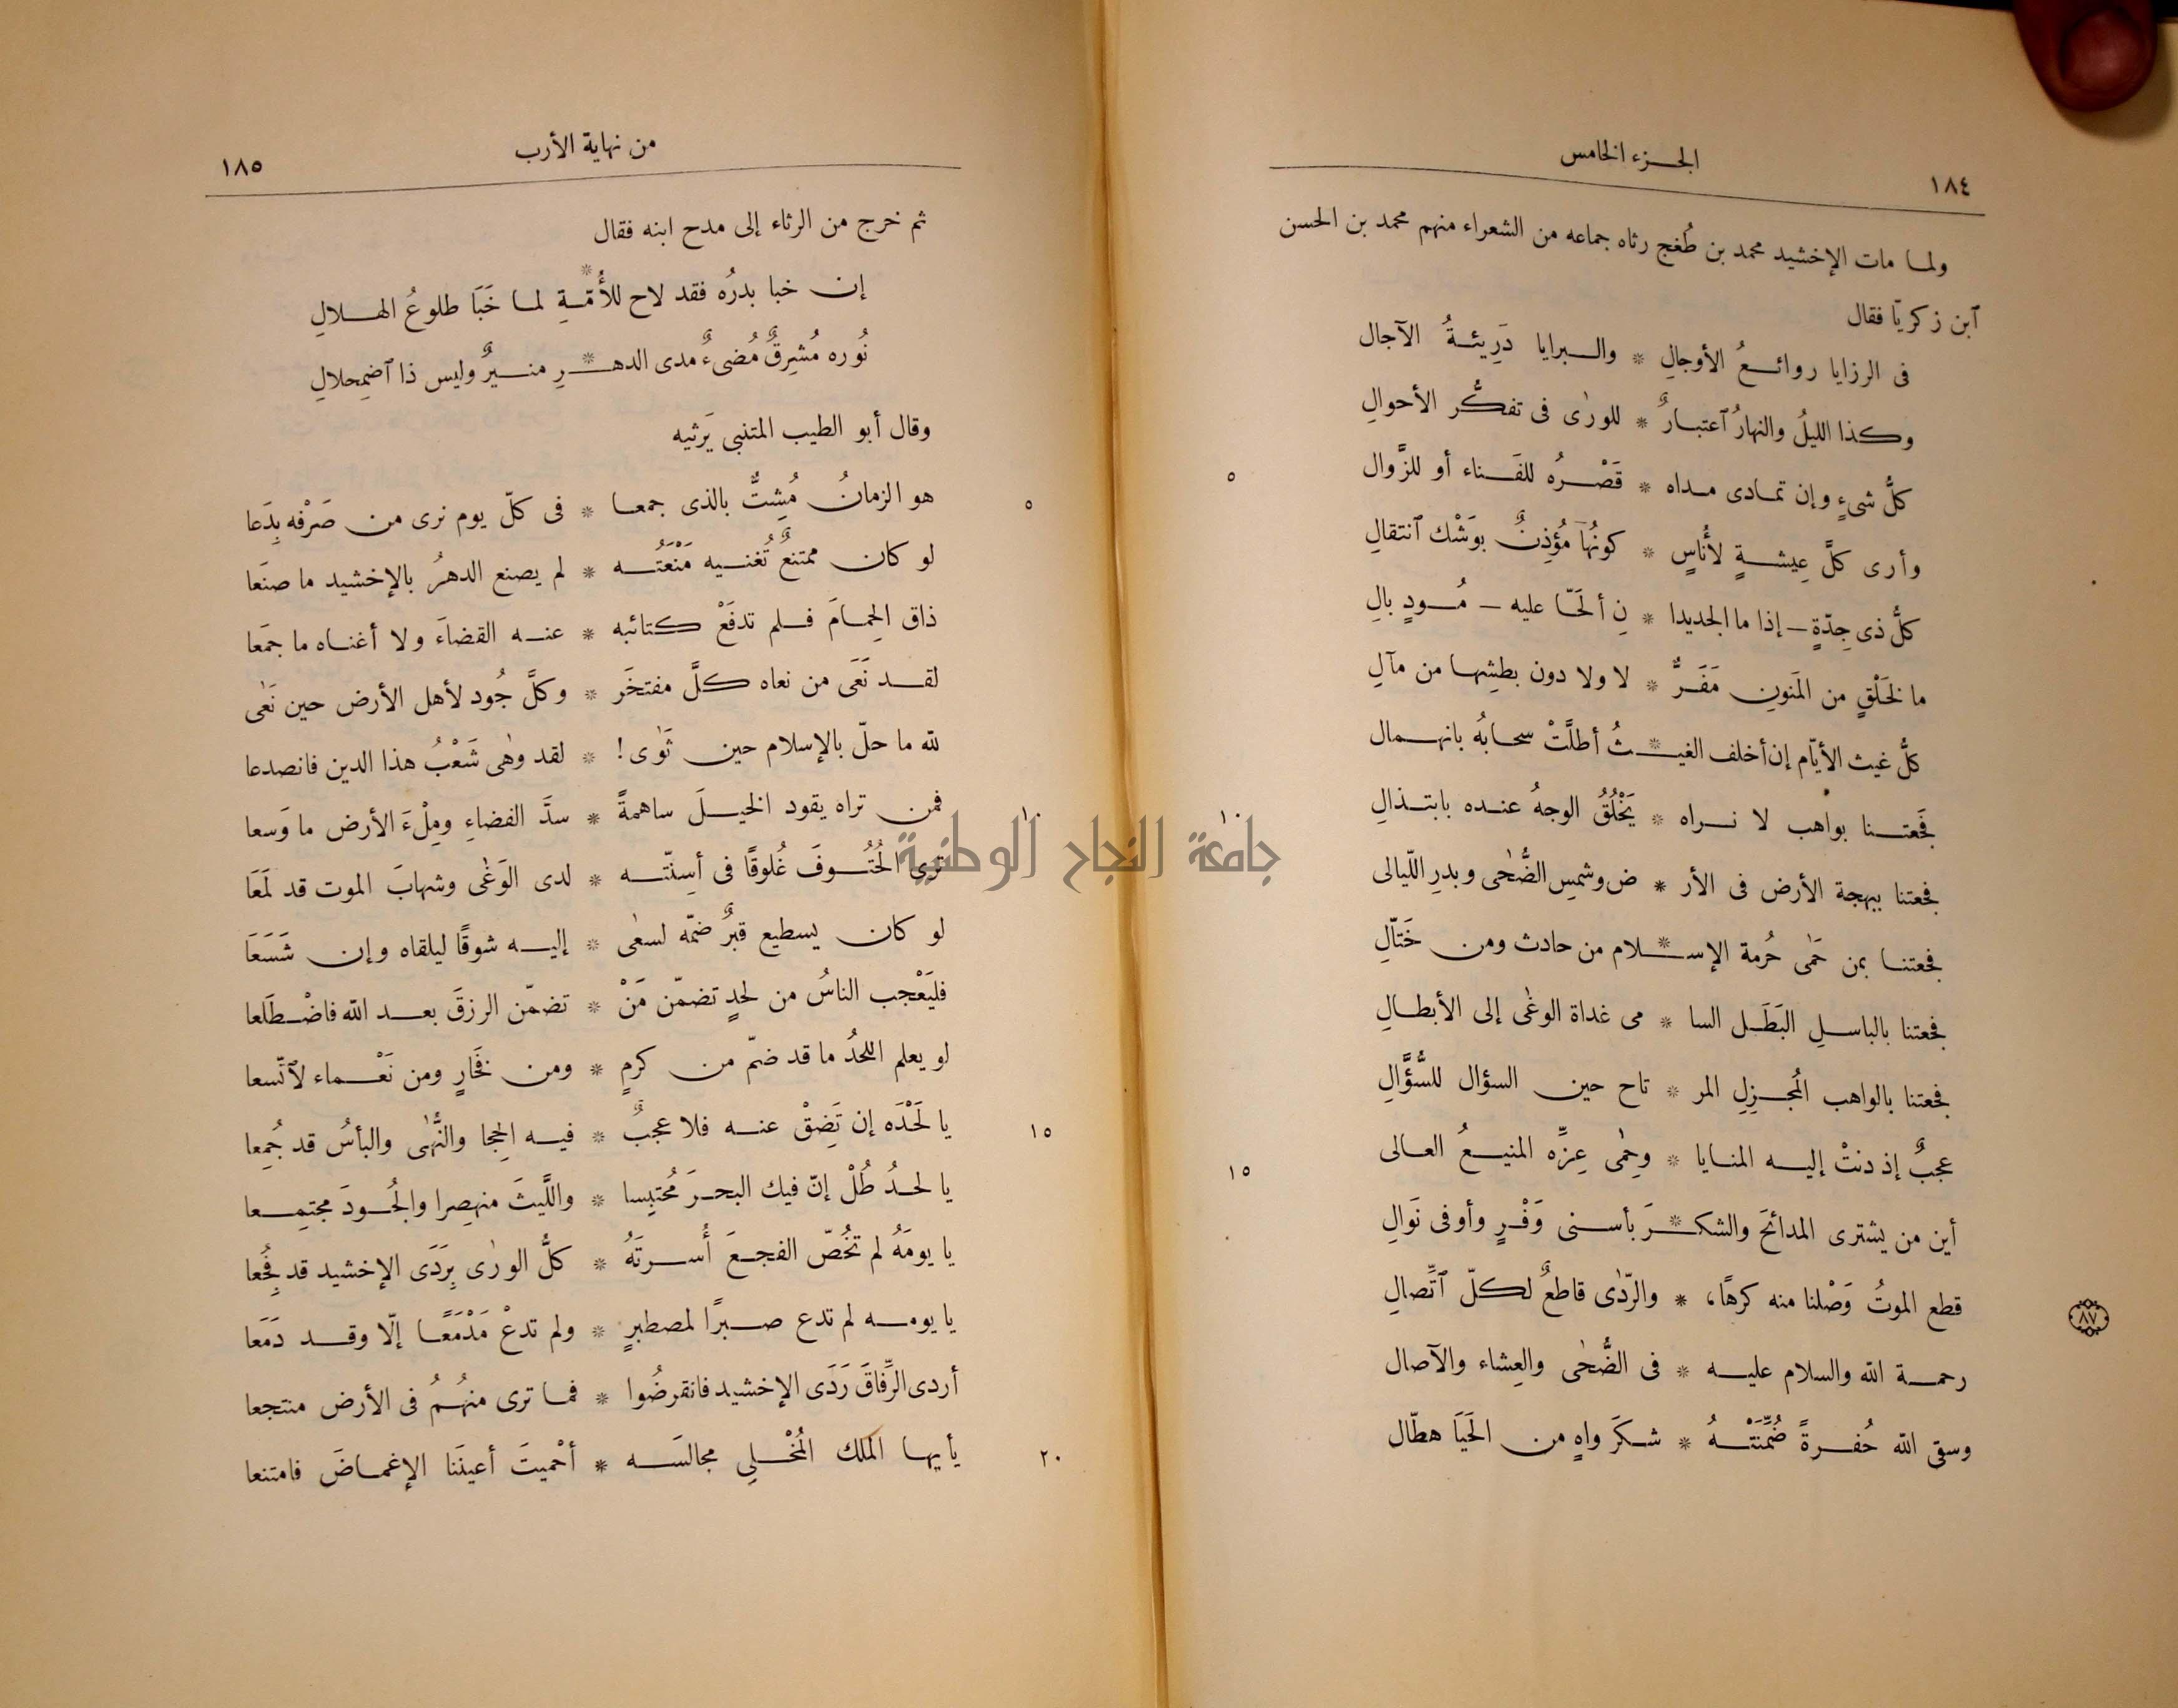 ١٨٤
الجزء الخامس
ولما مات الإخشيد محمد بن طُغج رثاه جماعه من الشعراء منهم محمد بن الحسن
ٱبن زكريّا فقال
فى الرزايا روائعُ الأوجالِ * والبرايا دَرِيئةُ الآجال
وكذا الليلُ والنهارُ ٱعتبارٌ * للورٰى فى تفكُّر الأحوالِ
كلُّ شىءٍ وإن تمادى مداه * قَصْرُه للفَناء أو للزَّوال
٥
وأرى كلَّ عِيشةٍ لأُناسٍ * كونُهَا مُؤْذِنٌ بوَشْك ٱنتقالِ
كلُّ ذى جِدّةٍ – إذا ما الجديدا * نِ ألَحّا عليه – مُودٍ بالِ
ما لخَلْقٍ من المَنونِ مَفَرٌّ * لا ولا دون بطشِها من مآلِ
كلُّ غيث الأيّام إن أخلف الغيـ * ـثُ أطلَّتْ سحابُه بانهمال
فَجعتنا بواهب لا نراه * يَخْلُقُ الوجهُ عنده بابتذالِ
١٠
فجعتنا ببهجة الأرض فى الأر * ض وشمسِ الضُّحٰى وبدرِ اللّيالى
فجعتنا بمن حَمٰى حُرمة الإسـ * ـلام من حادث ومن خَتّالِ
فجعتنا بالباسلِ البَطَل السا * مى غداة الوغٰى إلى الأبطالِ
فجعتنا بالواهب المُجزِلِ المر * تاح حين السؤال للسُّؤَّالِ
عجبٌ إذ دنتْ إليه المنايا * وحِمٰى عِزِّه المنيعُ العالى
١٥
أين من يشترى المدائحَ والشكـ * ـرَ بأسنى وَفْرٍ وأوفى نَوالِ
قطع الموتُ وَصْلنا منه كرهًا، * والرّدٰى قاطعٌ لكلّ ٱتِّصالِ
٨٧
رحمة الله والسلام عليه * فى الضُّحٰى والعِشاء والآصال
وسقى الله حُفرةً ضُمِّنَتْهُ * شكرَ واهٍ من الحَيَا هطّال
من نهاية الأرب
١٨٥
ثم خرج من الرثاء إلى مدح ابنه فقال
إن خبا بدرُه فقد لاح للأُ * مّةِ لما خَبَا طلوعُ الهلالِ
نُوره مُشرِقٌ مُضىءٌ مدى الدهـ * ـرِ منيرٌ وليس ذا ٱضمِحلالِ
وقال أبو الطيب المتنبى يَرثيه
هو الزمانُ مُشِتٌّ بالذى جمعا * فى كلّ يوم نرى من صَرْفه بِدَعا
٥
لو كان ممتنعٌ تُغنيه مَنْعَتُه * لم يصنع الدهرُ بالإخشيد ما صنَعا
ذاق الحِمامَ فلم تدفَعْ كتائبه * عنه القضاءَ ولا أغناه ما جمَعا
لقد نَعَى من نعاه كلَّ مفتخَر * وكلَّ جُود لأهل الأرض حين نَعٰى
لله ما حلّ بالإسلام حين ثَوٰى! * لقد وهٰى شَعْبُ هذا الدين فانصدعا
فمن تراه يقود الخيلَ ساهمةً * سدَّ الفضاءِ ومِلْءَ الأرض ما وَسعا
١٠
ترى الحُتُوفَ غُلوقًا فى أسِنّته * لدى الوَغٰى وشهابَ الموت قد لَمَعَا
لو كان يسطيع قبرٌ ضمّه لسعٰى * إليه شوقًا ليلقاه وإن شَسَعَا
فليَعْجب الناسُ من لحدٍ تضمّن مَنْ * تضمّن الرزقَ بعد الله فاضْطَلعا
لو يعلم اللحدُ ما قد ضمّ من كرمٍ * ومن فَخَارٍ ومن نَعْماء لٱتّسعا
يا لَحْدَه إن تَضِقْ عنه فلا عجبٌ * فيه الحِجا والنُّهٰى والبأسُ قد جُمِعا
١٥
يا لحدُ طُلْ إنّ فيك البحرَ مُحتبِسا * واللَّيثَ منهصِرا والجُودَ مجتمِعا
يا يومَهُ لم تخُصّ الفجعَ أُسرتَهُ * كلُّ الورٰى بِرَدَى الإخشيد قد فُجِعا
يا يومه لم تدع صبرًا لمصطبرٍ * ولم تدعْ مَدْمَعًا إلّا وقد دَمَعَا
أردى الرِّفاقَ رَدَى الإخشيد فانقرضُوا * فما ترى منهُمُ فى الأرض منتجعا
يأيها الملك المُخْلِى مجالسَه * أحْميتَ أعينَنا الإغماضَ فامتنعا
٢٠
جامعة النجاح الوطنية